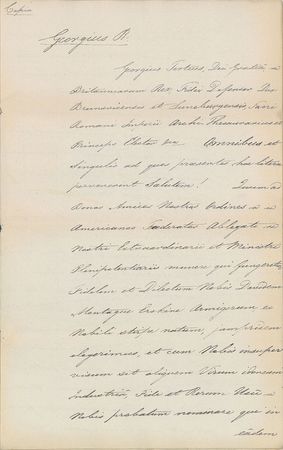 Copia
Georgius R.
Georgius Tertius, Dei Gratiâ
Britanniarum Rex, Fidei Defensor Dux
Brunsvicensis et Luneburgensis, Sacri
Romani Imperii Archi Thesaurarius et
Princeps Elector &c Omnibus et
Singulis ad quos præsentes hæ literæ
pervenerint Salutem! Quum ad
Bonos Amicos Nostros Ordines
Americanos Fæderatos Ablegati
Nostri Extraordinarii et Ministri
Plenipotentiarii munere qui fungeretur
Fidelem et Dilectum Nobis Davidem
Montague Erskine Armigerum ex
Nobile stirpe natum, jampridem
elegerimus, et cum Nobis insuper
visum sit aliquem Virum
industriâ, Fide et Rerum Usu
Nobis probatum nominare qui in
eâdem